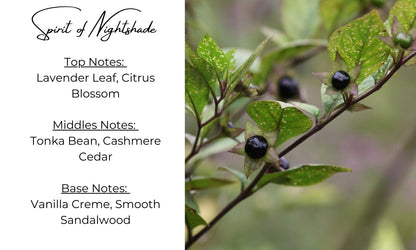 Spirit of Nightshade
Top Notes:
Lavender Leaf, Citrus
Blossom
Middles Notes:
Tonka Bean, Cashmere
Cedar
Base Notes:
Vanilla Creme, Smooth
Sandalwood